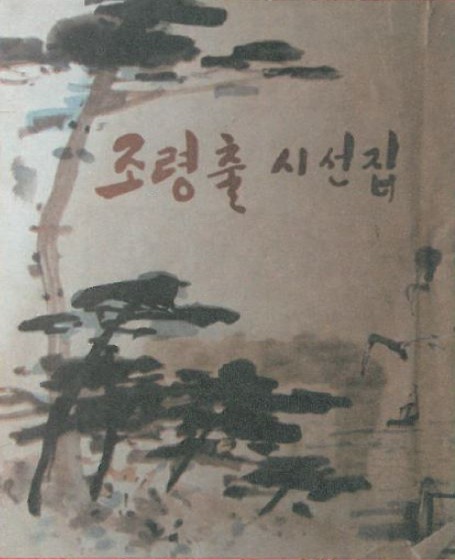 조령출 시선집